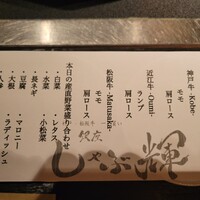 神戸牛 -Kobe-
モモ
肩ロース
近江牛 -Oumi-
ランプ
肩ロース
松阪牛 -Matusaka-
モモ
肩ロース
本日の産直野菜盛り合わせ
・白菜
・水菜
・長ネギ
・豆腐
・大根
・人参
・レタス
・小松菜
・マロニー
・ラディッシュ
銀座
しゃぶ輝